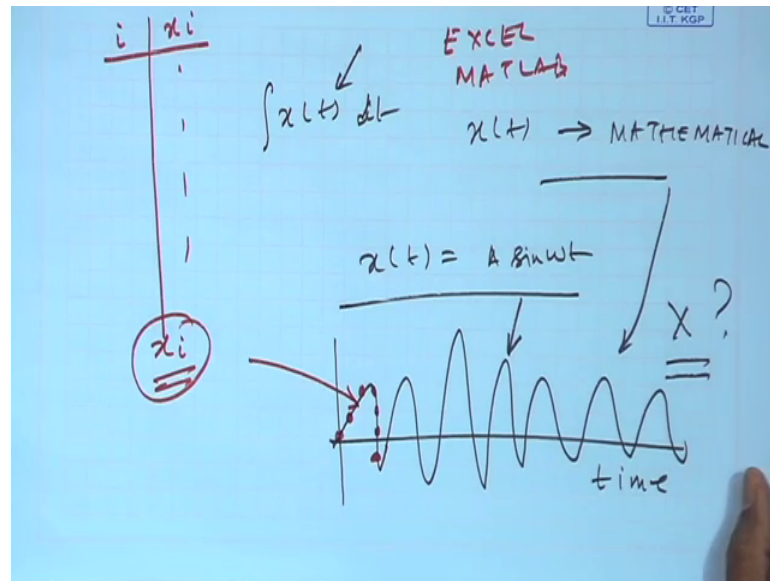 © CET
I.I.T. KGP
i xi
EXCEL
MATLAB
∫x(t) dt
x(t) → MATHEMATICAL
x(t) = A sin wt
xi
X ?
time